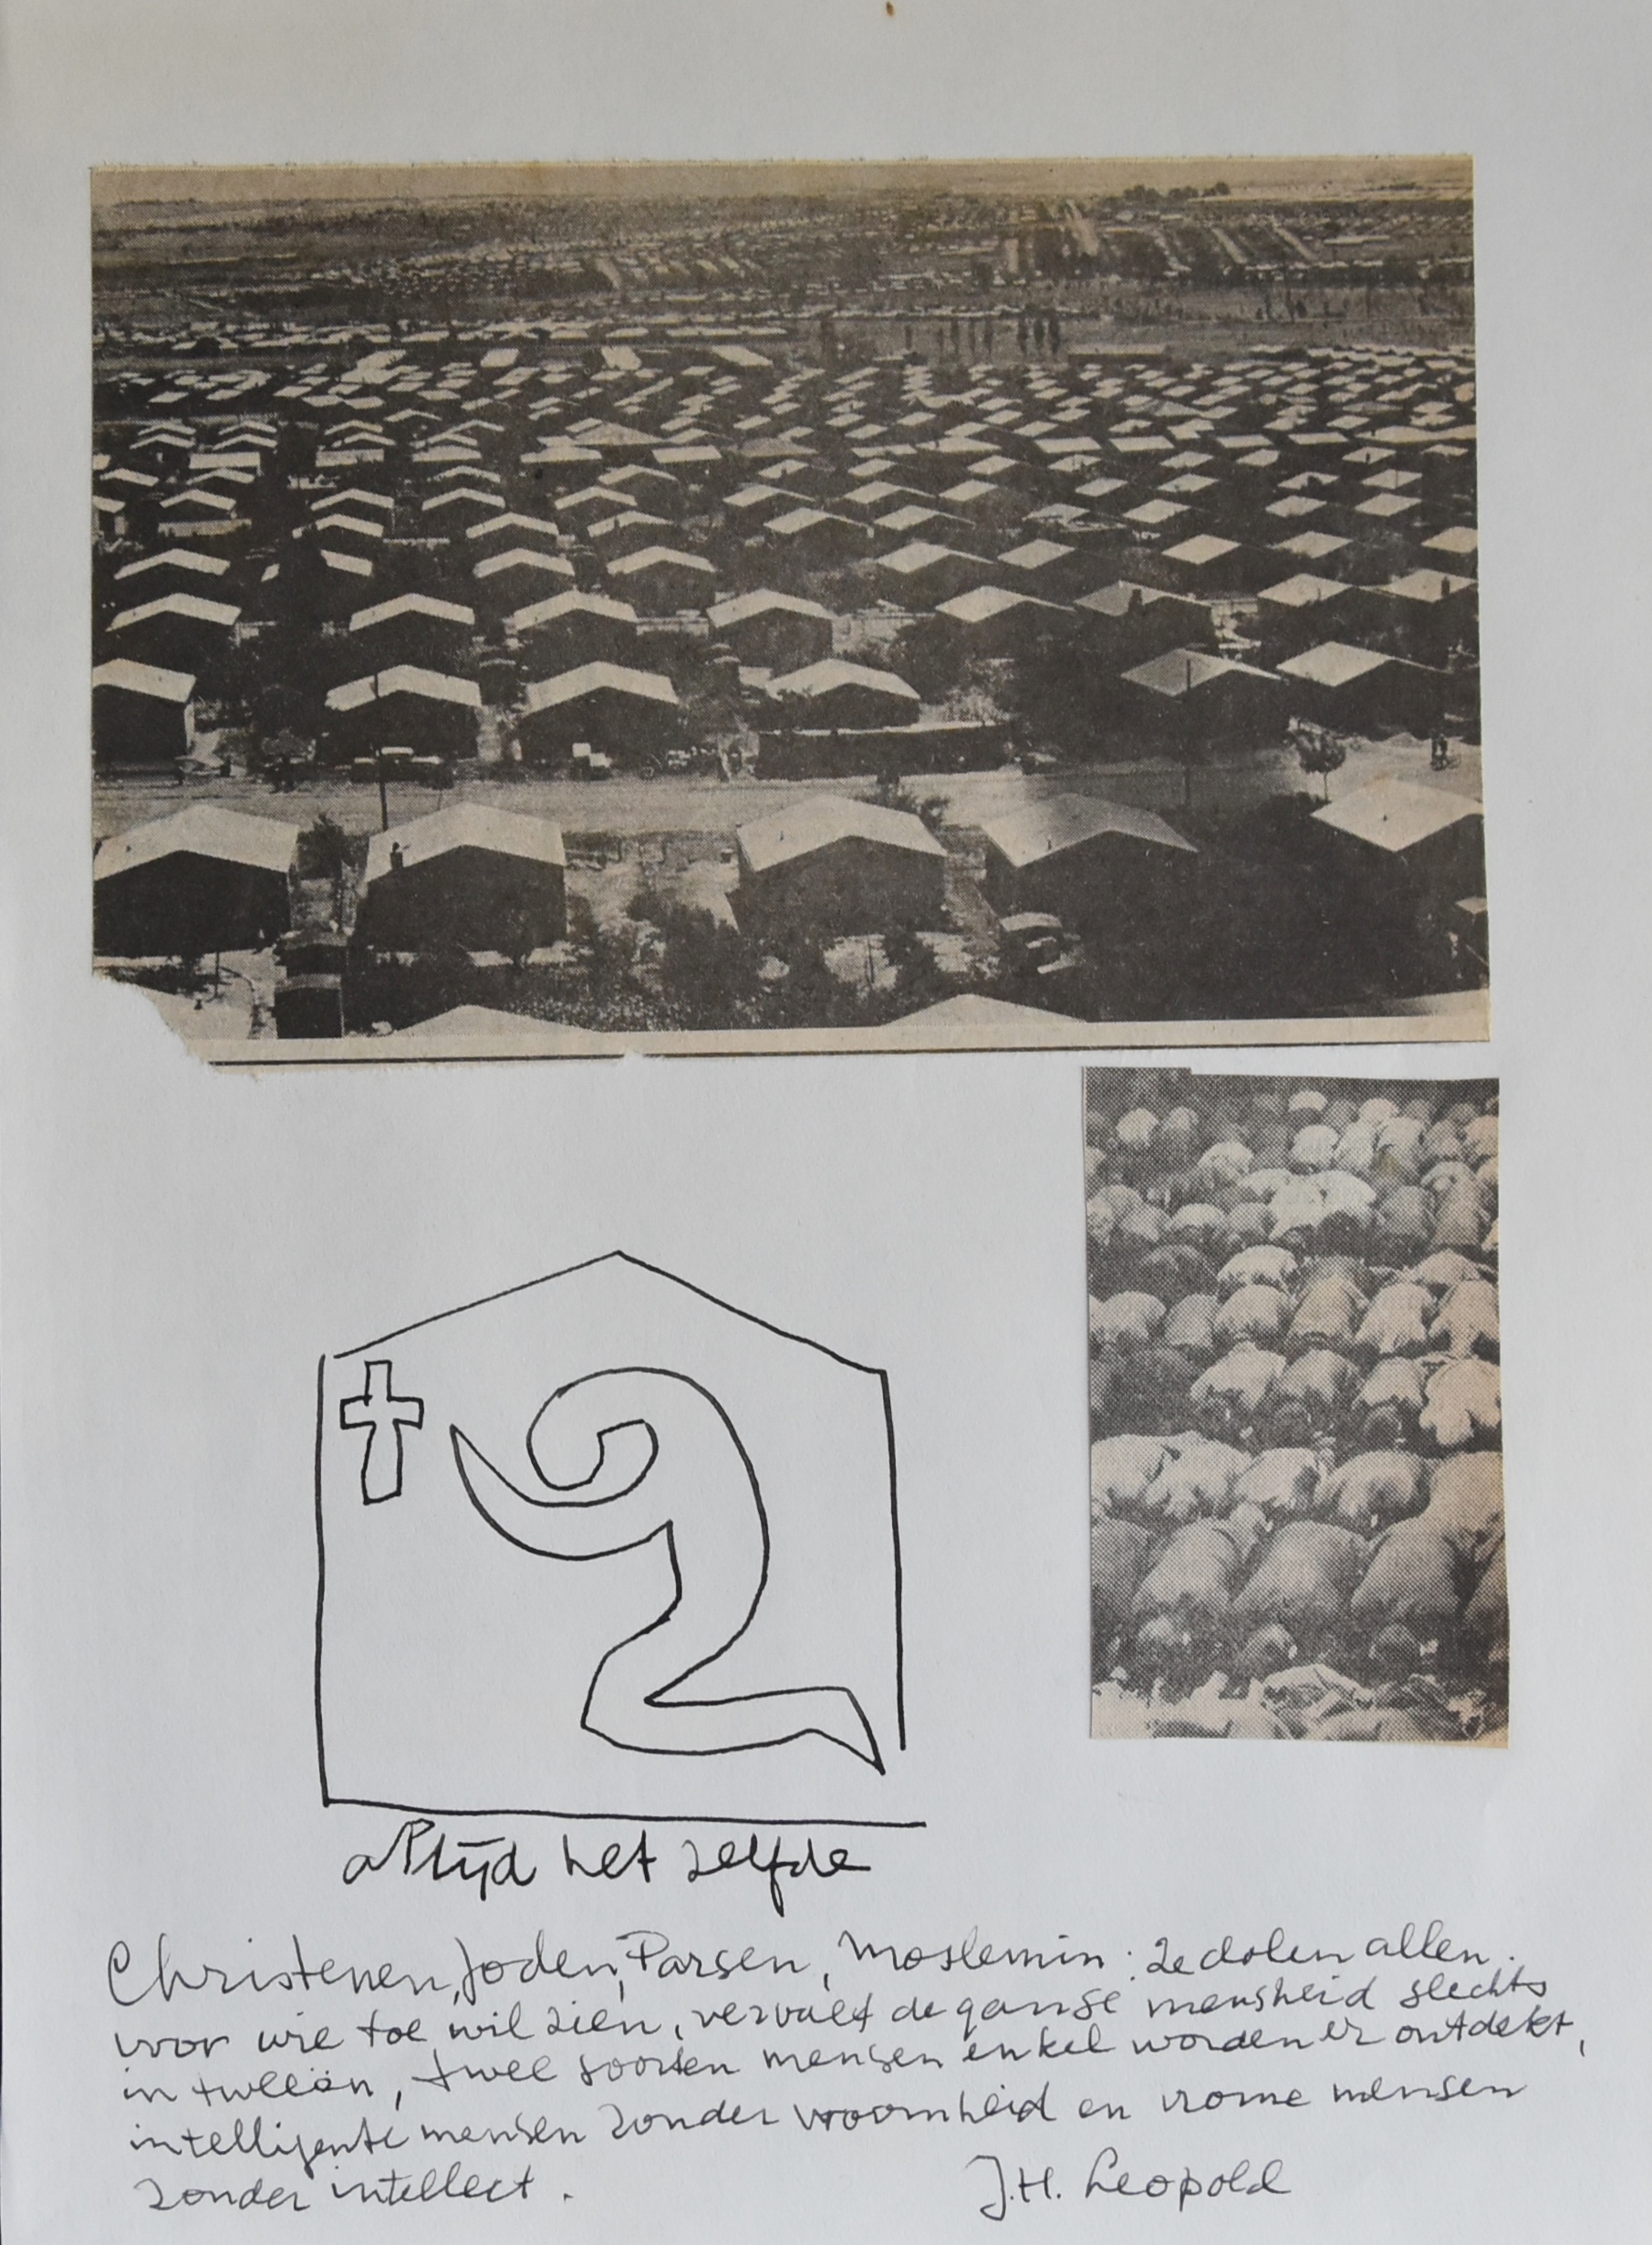 altijd het zelfde
Christenen, Joden, Parsen, Moslemin: ze dolen allen.
voor wie toe wil zien, vervalt de ganse mensheid slechts
in tweeën, twee soorten mensen enkel worden er ontdekt,
intelligente mensen zonder vroomheid en vrome mensen
zonder intellect.
J.H. Leopold